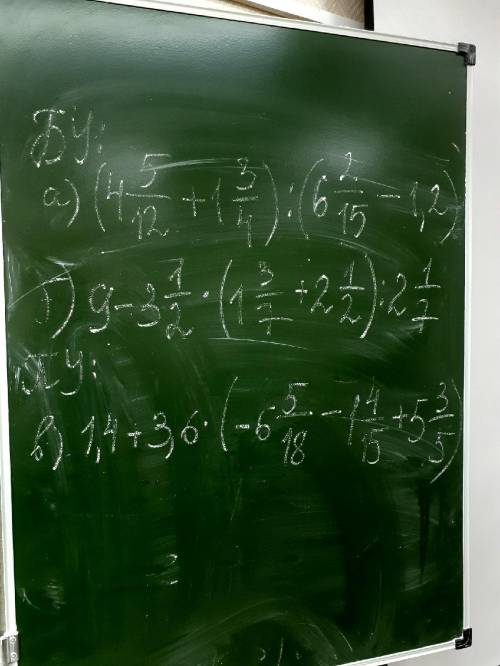 БУ:
а) (4 5/12 + 1 3/4) : (6 2/15 - 1,2)
б) 9 - 3 1/2 · (1 3/7 + 2 1/2) : 2 1/7
ПУ:
в) 1,4 + 3,6 · (-6 5/18 - 1 4/15 + 5 3/5)